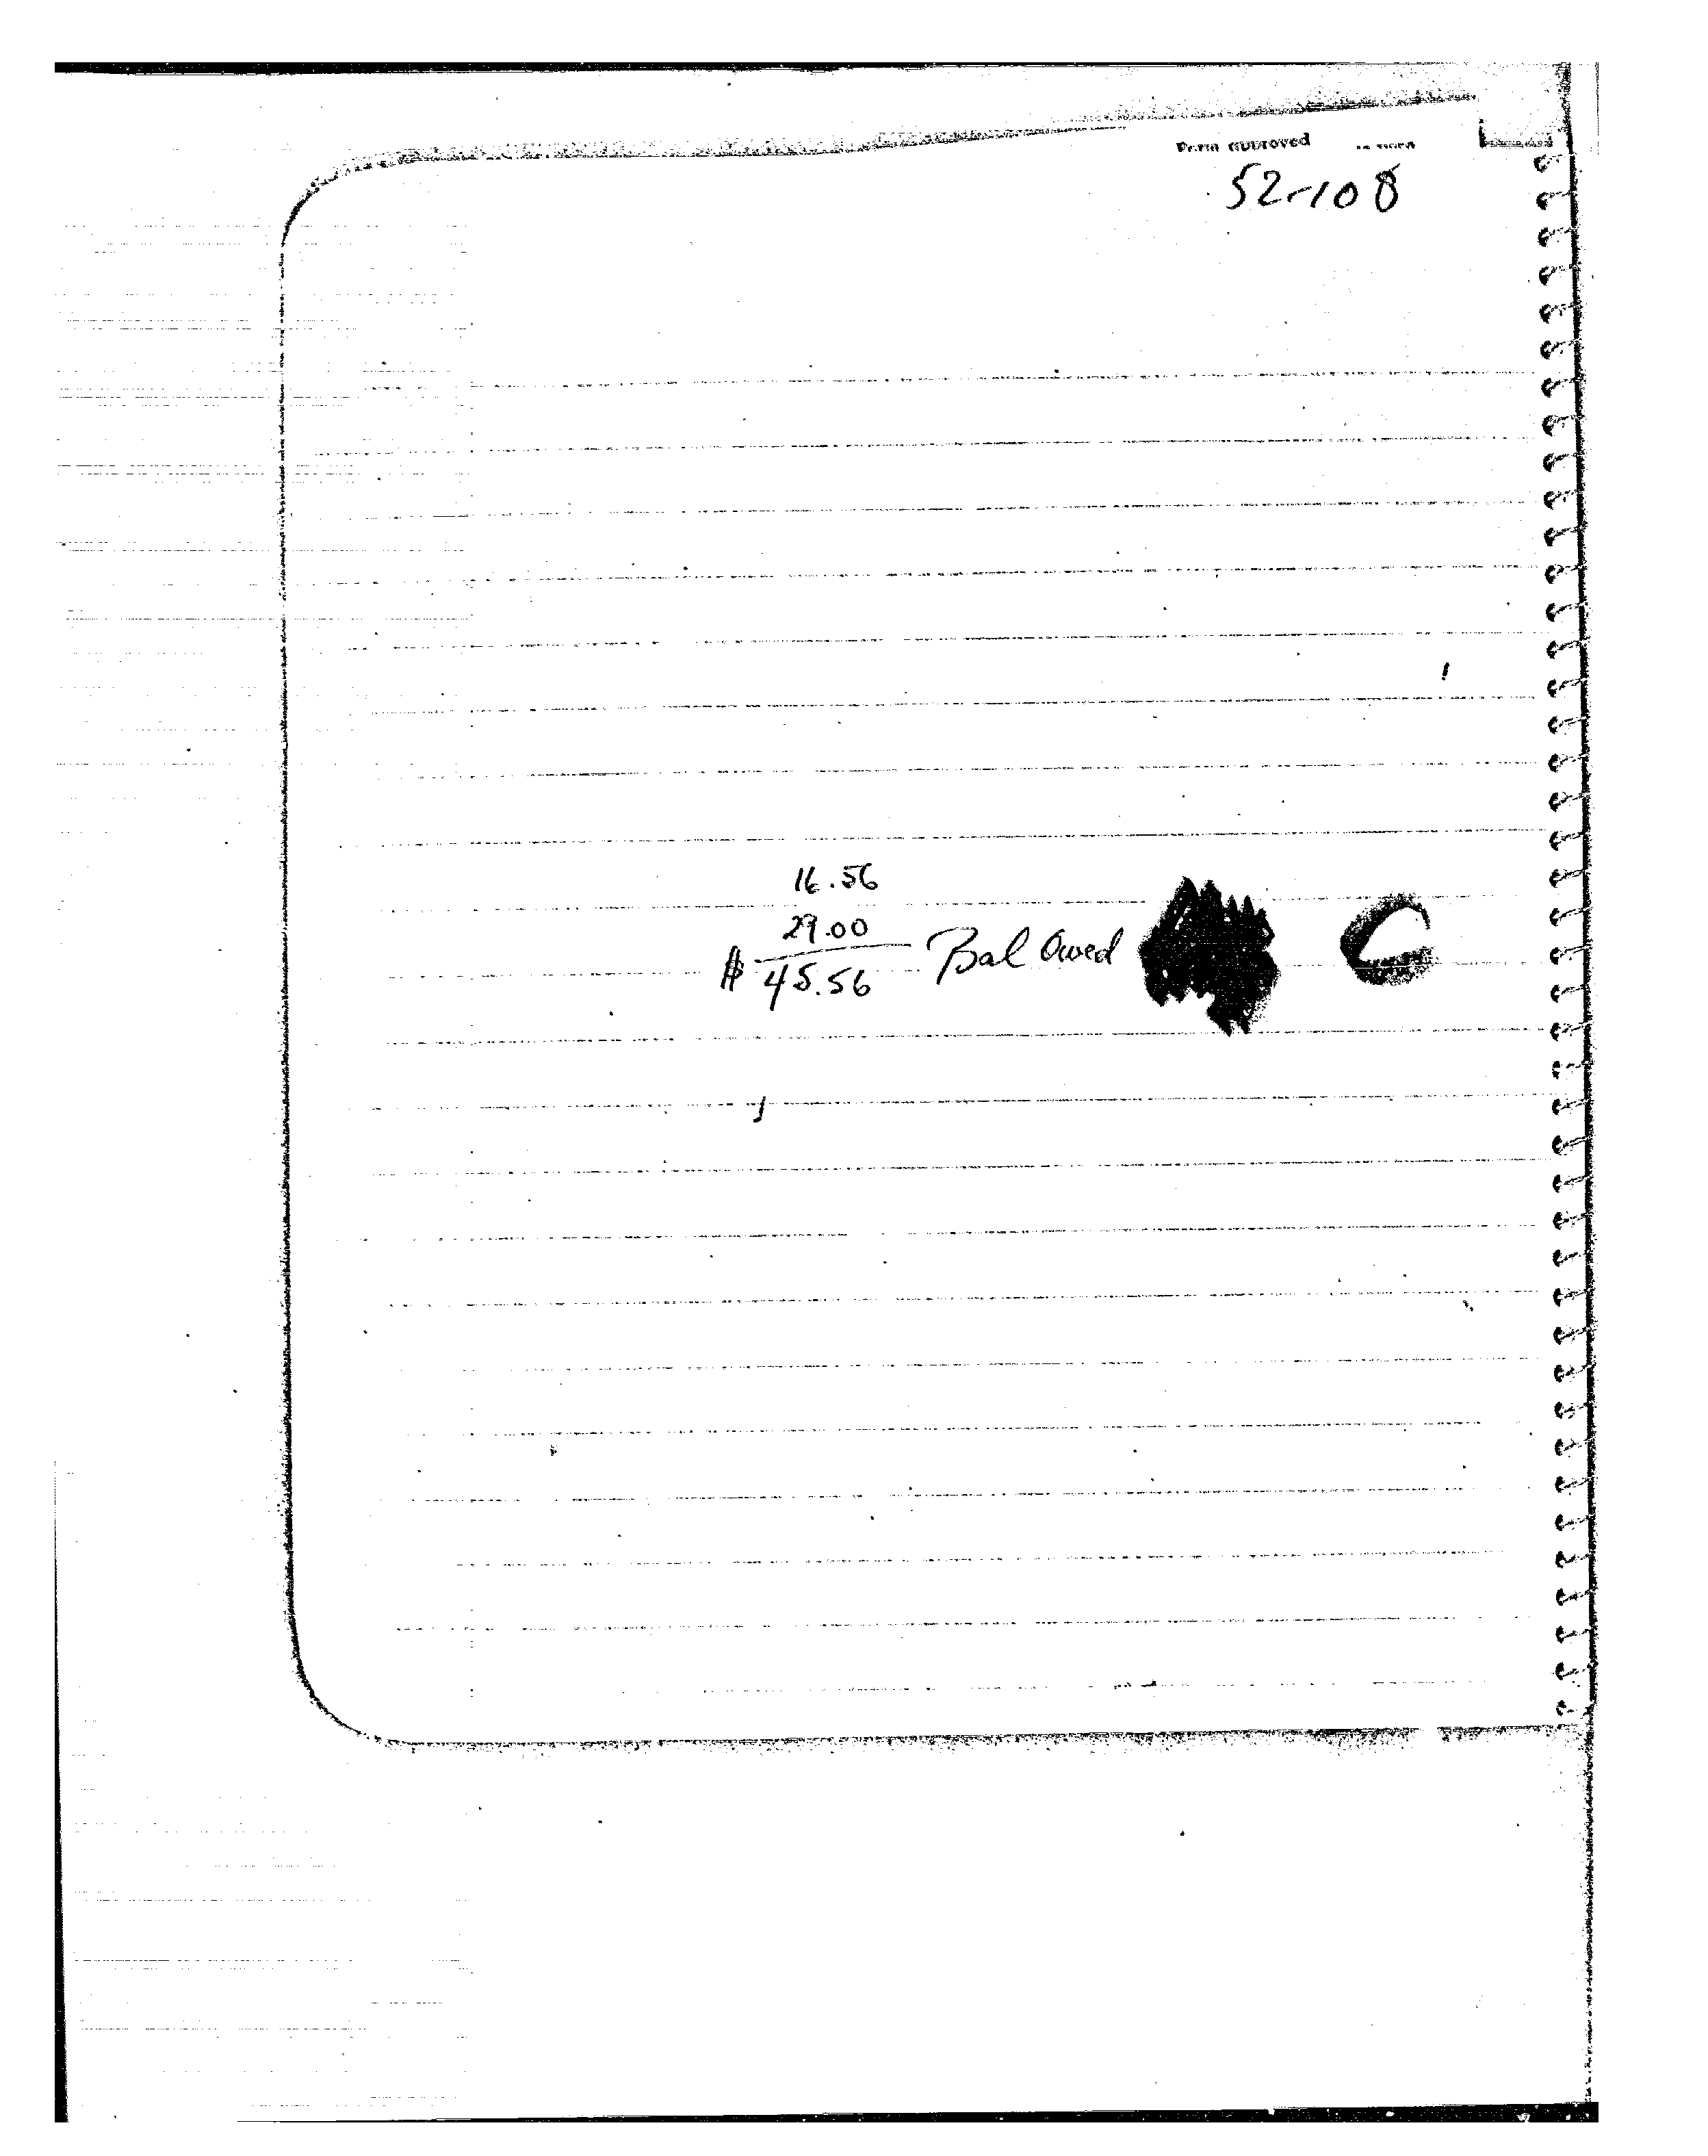 Form approved
52-108
16.56
29.00
$ 45.56 Bal Owed C